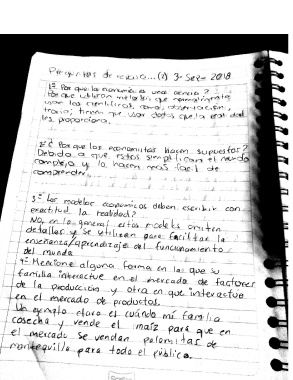 Preguntas de repaso...(1) 3-Sez-2018
1.- ¿Por qué la economía es una ciencia?
Porque utilizan métodos que normalmente
usan los científicos, como: observación,
teoría; tienen que usar datos que la realidad
les proporciona.
2.- ¿Por qué los economistas hacen supuestos?
Debido a que estos simplifican el mundo
complejo y lo hacen más fácil de
comprender.
3.- ¿Los modelos económicos deben escribir con
exactitud la realidad?
No, en lo general estos modelos omiten
detalles y se utilizan para facilitar la
enseñanza/aprendizaje del funcionamiento
del mundo
4.- Mencione alguna forma en la que su
familia interactue en el mercado de factores
de la producción y otra en que interactue
en el mercado de productos.
Un ejemplo claro es cuándo mi familia
cosecha y vende el maíz para que en
el mercado se vendan palomitas de
mantequilla para todo el público.